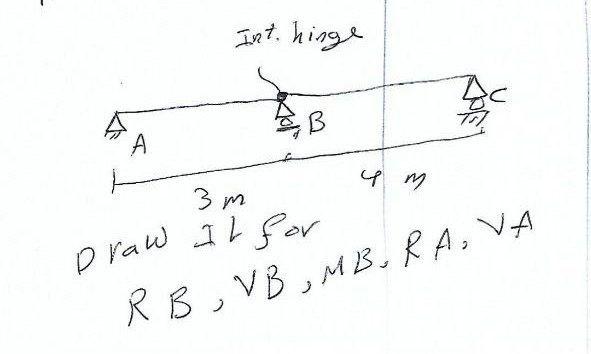 Int. hinge
A
B
C
3 m
4 m
Draw IL for
RB, VB, MB, RA, VA